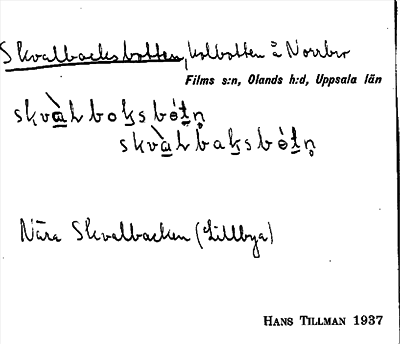 Skvalbacksbotten, kolbotten å Norrbro
Films s:n, Olands h:d, Uppsala län
skvàḷboḵsbòṯṇ
skvàḷbaḵsbòṯṇ
Nära Skvalbacken (Lillbya)
HANS TILLMAN 1937